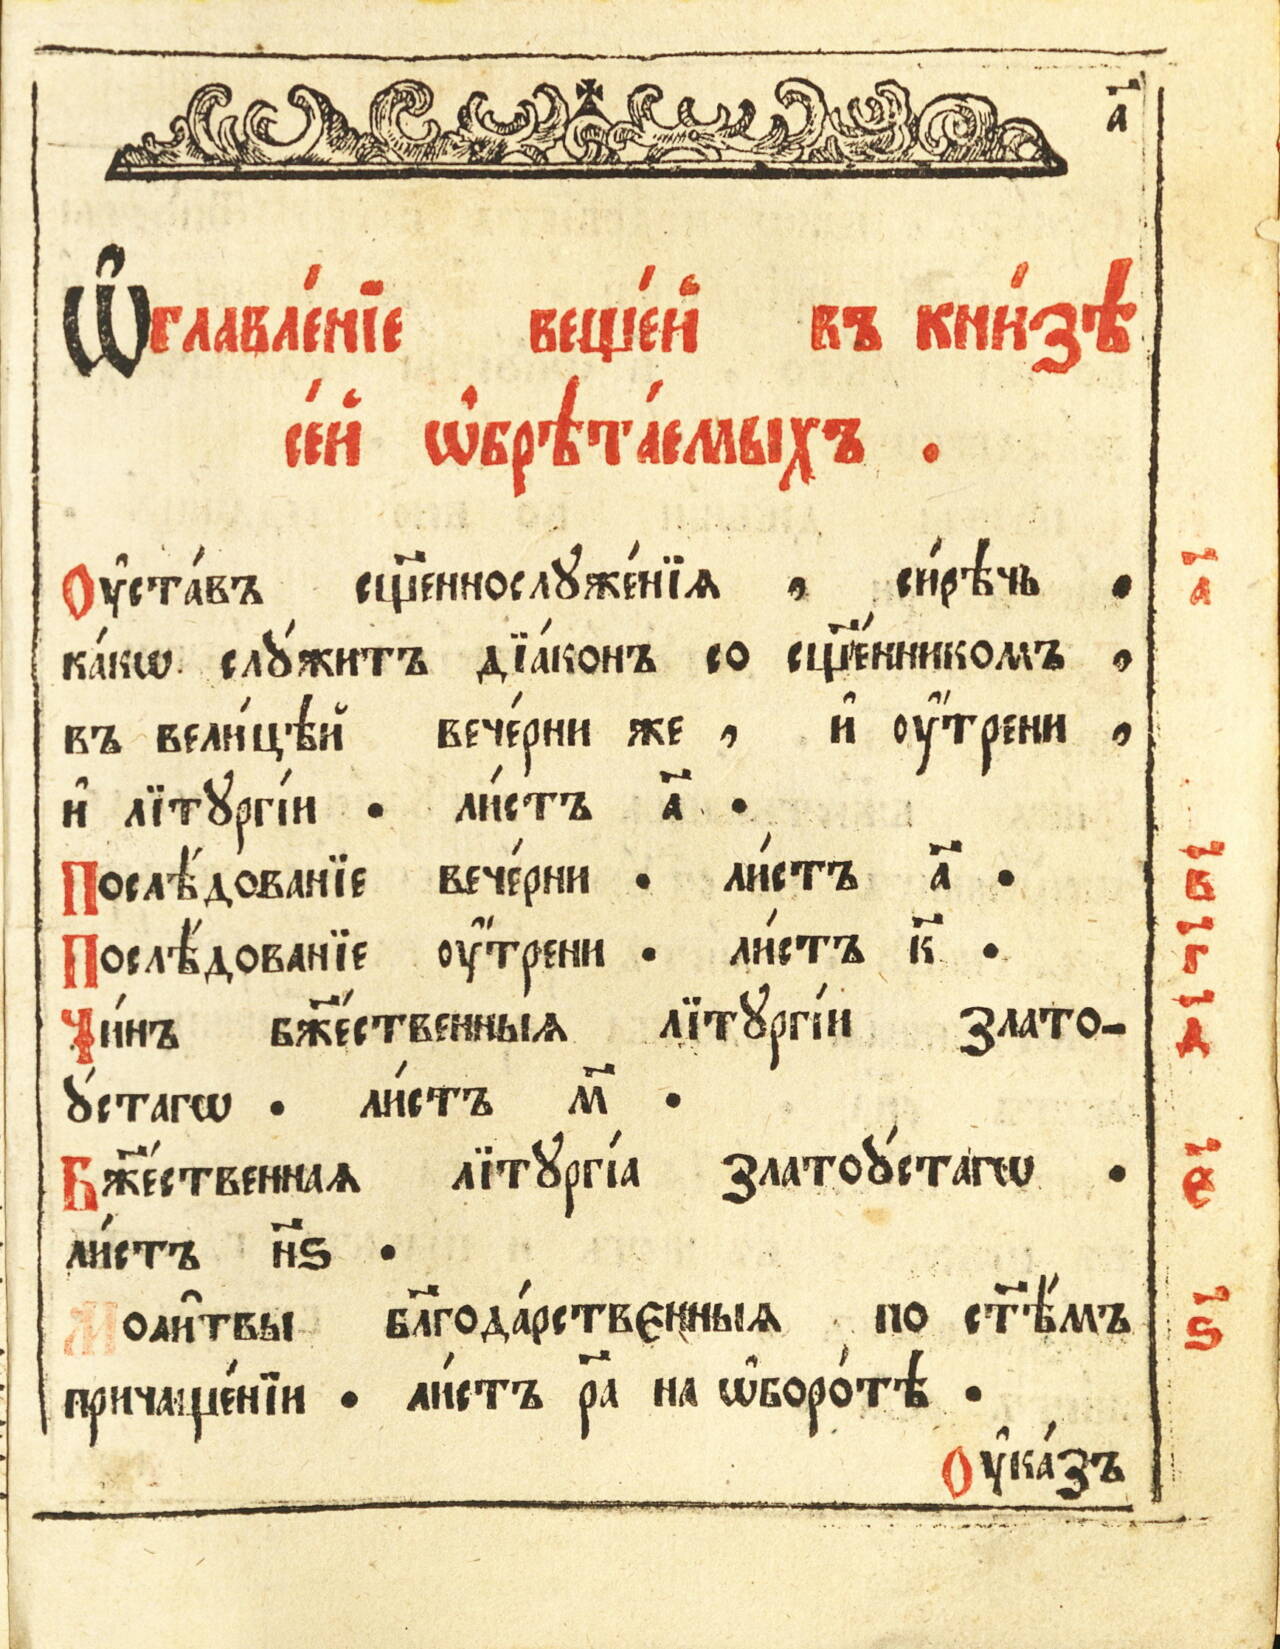 а҃
Ѡ҆главле́нїе веще́й въ кни́зѣ
се́й ѡ҆брѣта́емыхъ .
Оу҆ста́въ сщ҃еннослꙋже́нїѧ , си́рѣчь . а҃
ка́кѡ слꙋ́житъ дїа́конъ со сщ҃е́нникомъ ,
въ вели́цѣй вече́рни же , и҆ оу҆́трени ,
и҆ лїтꙋргі́и . ли́стъ а҃ .
Послѣ́дованїе вече́рни . ли́стъ а҃ . в҃
Послѣ́дованїе оу҆́трени . ли́стъ к҃ . г҃
Чи́нъ бж҃е́ственныѧ лїтꙋргі́и злато- д҃
ꙋ́стагѡ . ли́стъ м҃ .
Бж҃е́ственнаѧ лїтꙋргі́а златоꙋ́стагѡ . є҃
ли́стъ н҃ѕ .
Моли҆твы бл҃года́рствєнныѧ по ст҃ѣ́мъ ѕ҃
причаще́нїи . ли́стъ р҃а на ѡ҆боро́тѣ .
Оу҆ка́зъ